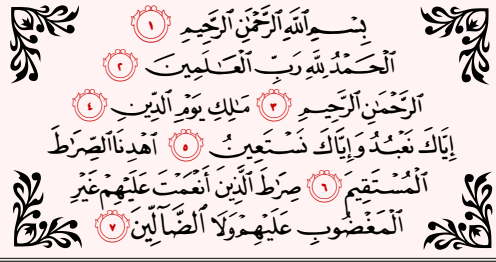 بِسْمِ ٱللَّهِ ٱلرَّحْمَٰنِ ٱلرَّحِيمِ ١
ٱلْحَمْدُ لِلَّهِ رَبِّ ٱلْعَـٰلَمِينَ ٢
ٱلرَّحْمَٰنِ ٱلرَّحِيمِ ٣ مَـٰلِكِ يَوْمِ ٱلدِّينِ ٤
إِيَّاكَ نَعْبُدُ وَإِيَّاكَ نَسْتَعِينُ ٥ ٱهْدِنَا ٱلصِّرَٰطَ
ٱلْمُسْتَقِيمَ ٦ صِرَٰطَ ٱلَّذِينَ أَنْعَمْتَ عَلَيْهِمْ غَيْرِ
ٱلْمَغْضُوبِ عَلَيْهِمْ وَلَا ٱلضَّآلِّينَ ٧